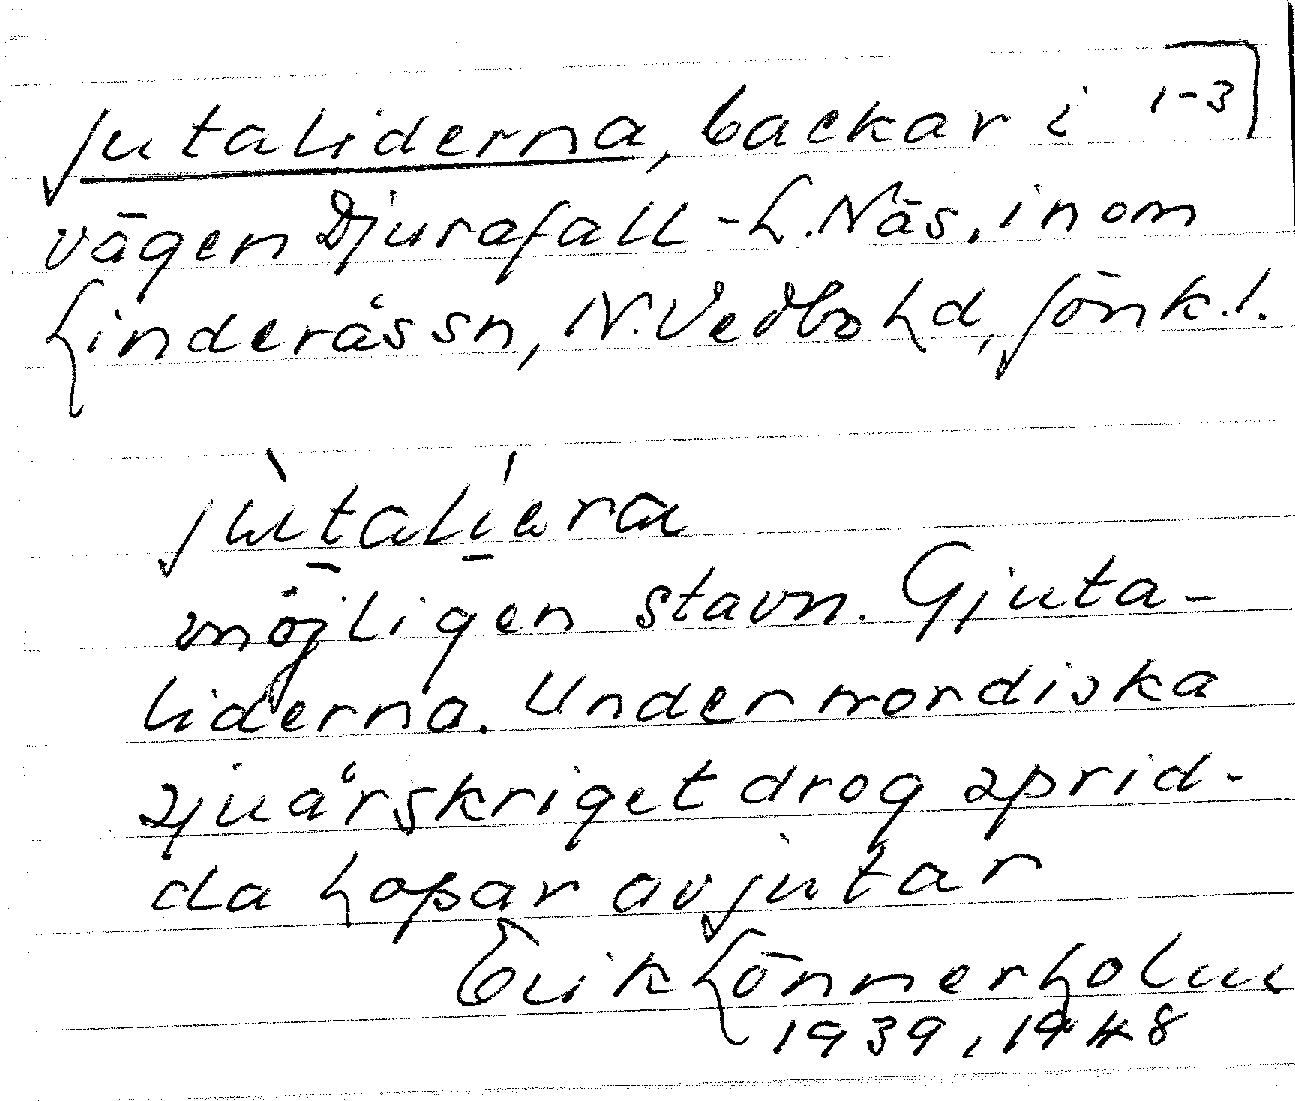 Jutaliderna, backar i 1-3
vägen Djurafall - L. Näs, inom
Linderås sn, N. Vedbo hd, Jönk. l.
jùtalíera
möjligen stavn. Gjuta-
liderna. Under nordiska
sjuårskriget drog sprid-
da hopar av jutar
Erik Lönnerholm
1939, 1948